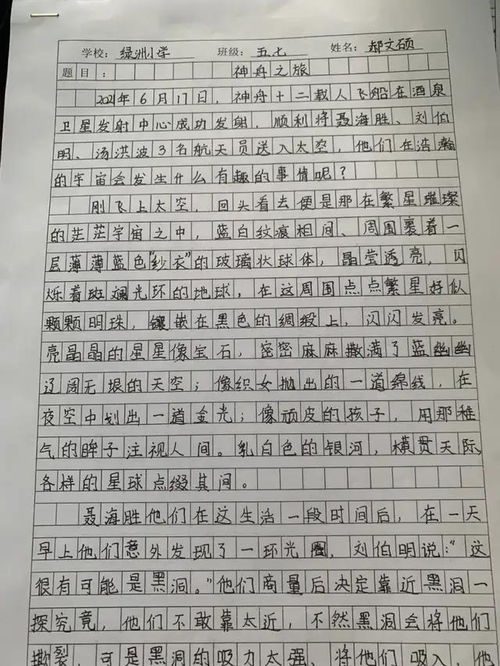 学校：绿洲小学 班级：五、七 姓名：郝文硕
题目：神舟之旅
2021年6月17日，神舟十二载人飞船在酒泉
卫星发射中心成功发射，顺利将聂海胜、刘伯
明、汤洪波3名航天员送入太空，他们在浩瀚
的宇宙会发生什么有趣的事情呢？
刚飞上太空，回头看去便是那在繁星璀璨
的茫茫宇宙之中，蓝白纹痕相间、周围裹着一
层薄薄蓝色“纱衣”的玻璃状球体，晶莹透亮，闪
烁着斑斓光环的地球，在这周围点点繁星好似
颗颗明珠，镶嵌在黑色的绸缎上，闪闪发亮。
亮晶晶的星星像宝石，密密麻麻撒满了蓝幽幽
辽阔无垠的天空；像织女抛出的一道绵线，在
夜空中划出一道金光；像顽皮的孩子，用那稚
气的眸子注视人间。乳白色的银河，横贯天际
各样的星球点缀其间。
聂海胜他们在这生活一段时间后，在一天
早上他们意外发现了一环光圈，刘伯明说：“这
很有可能是黑洞。”他们商量后决定靠近黑洞一
探究竟，他们不敢靠太近，不然黑洞会将他们
撕裂，可是黑洞的吸力太强，将他们吸入，他